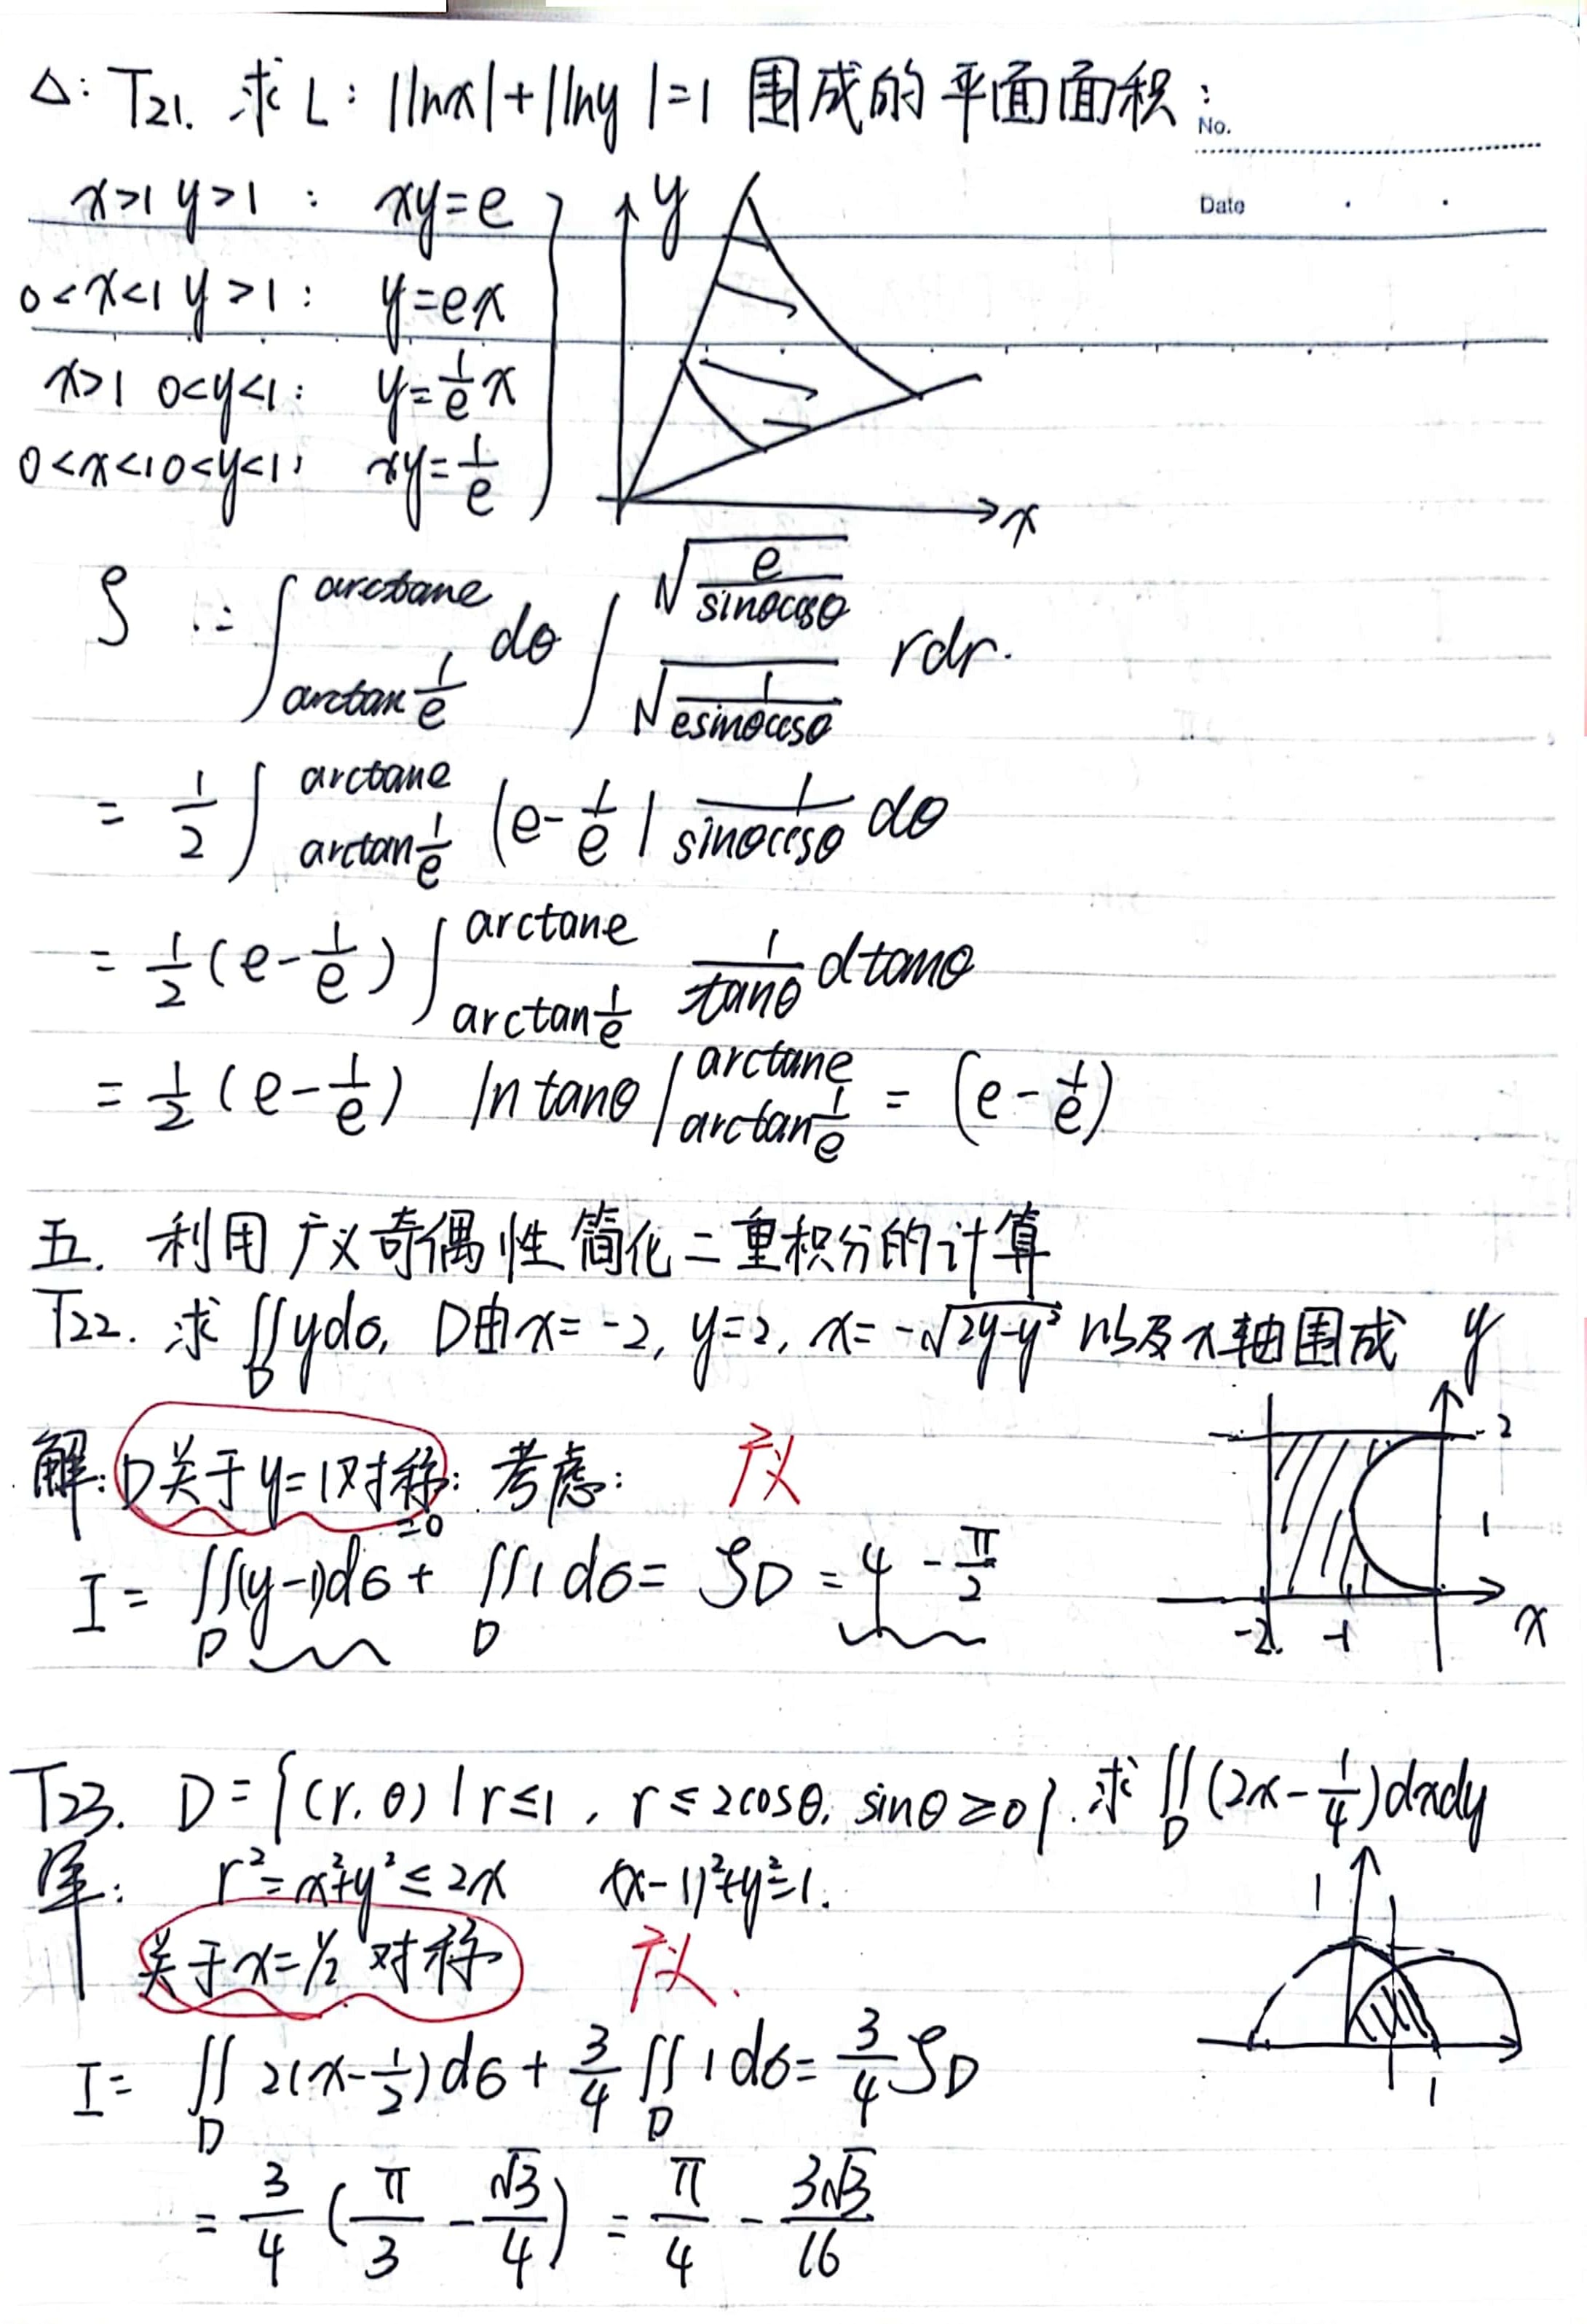 △: T21. 求 L: |lnx|+|lny|=1 围成的平面面积:
No.
Date
x>1 y>1 : xy=e
0<x<1 y>1: y=ex
x>1 0<y<1: y=1/e x
0<x<1 0<y<1: xy=1/e
y
x
S ∴= ∫_{arctan 1/e}^{arctane} dθ ∫_{√(1/(esinθcosθ))}^{√(e/(sinθcosθ))} rdr.
= 1/2 ∫_{arctan 1/e}^{arctane} (e-1/e) 1/(sinθcosθ) dθ
= 1/2 (e-1/e) ∫_{arctan 1/e}^{arctane} 1/tanθ dtanθ
= 1/2 (e-1/e) lntanθ |_{arctan 1/e}^{arctane} = (e-1/e)
五. 利用广义奇偶性简化二重积分的计算
T22. 求 ∬_D ydσ, D由x=-2, y=2, x=-√(2y-y²) 以及x轴围成
y
2
1
-2 -1 x
解: D关于y=1对称: 考虑: 广义
I= ∬_D (y-1)dσ =0 + ∬_D 1dσ= S_D = 4-π/2
T23. D={(r,θ)|r≤1, r≤2cosθ, sinθ≥0}. 求 ∬_D (2x-1/4)dxdy
解: r²=x²+y²≤2x (x-1)²+y²=1.
关于x=1/2 对称 广义.
1
1
I= ∬_D 2(x-1/2)dσ + 3/4 ∬_D 1dσ= 3/4 S_D
= 3/4 (π/3 - √3/4) = π/4 - 3√3/16